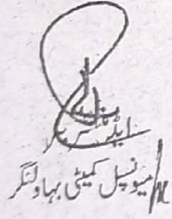 ایڈمنسٹریٹر
میونسپل کمیٹی بہاولنگر